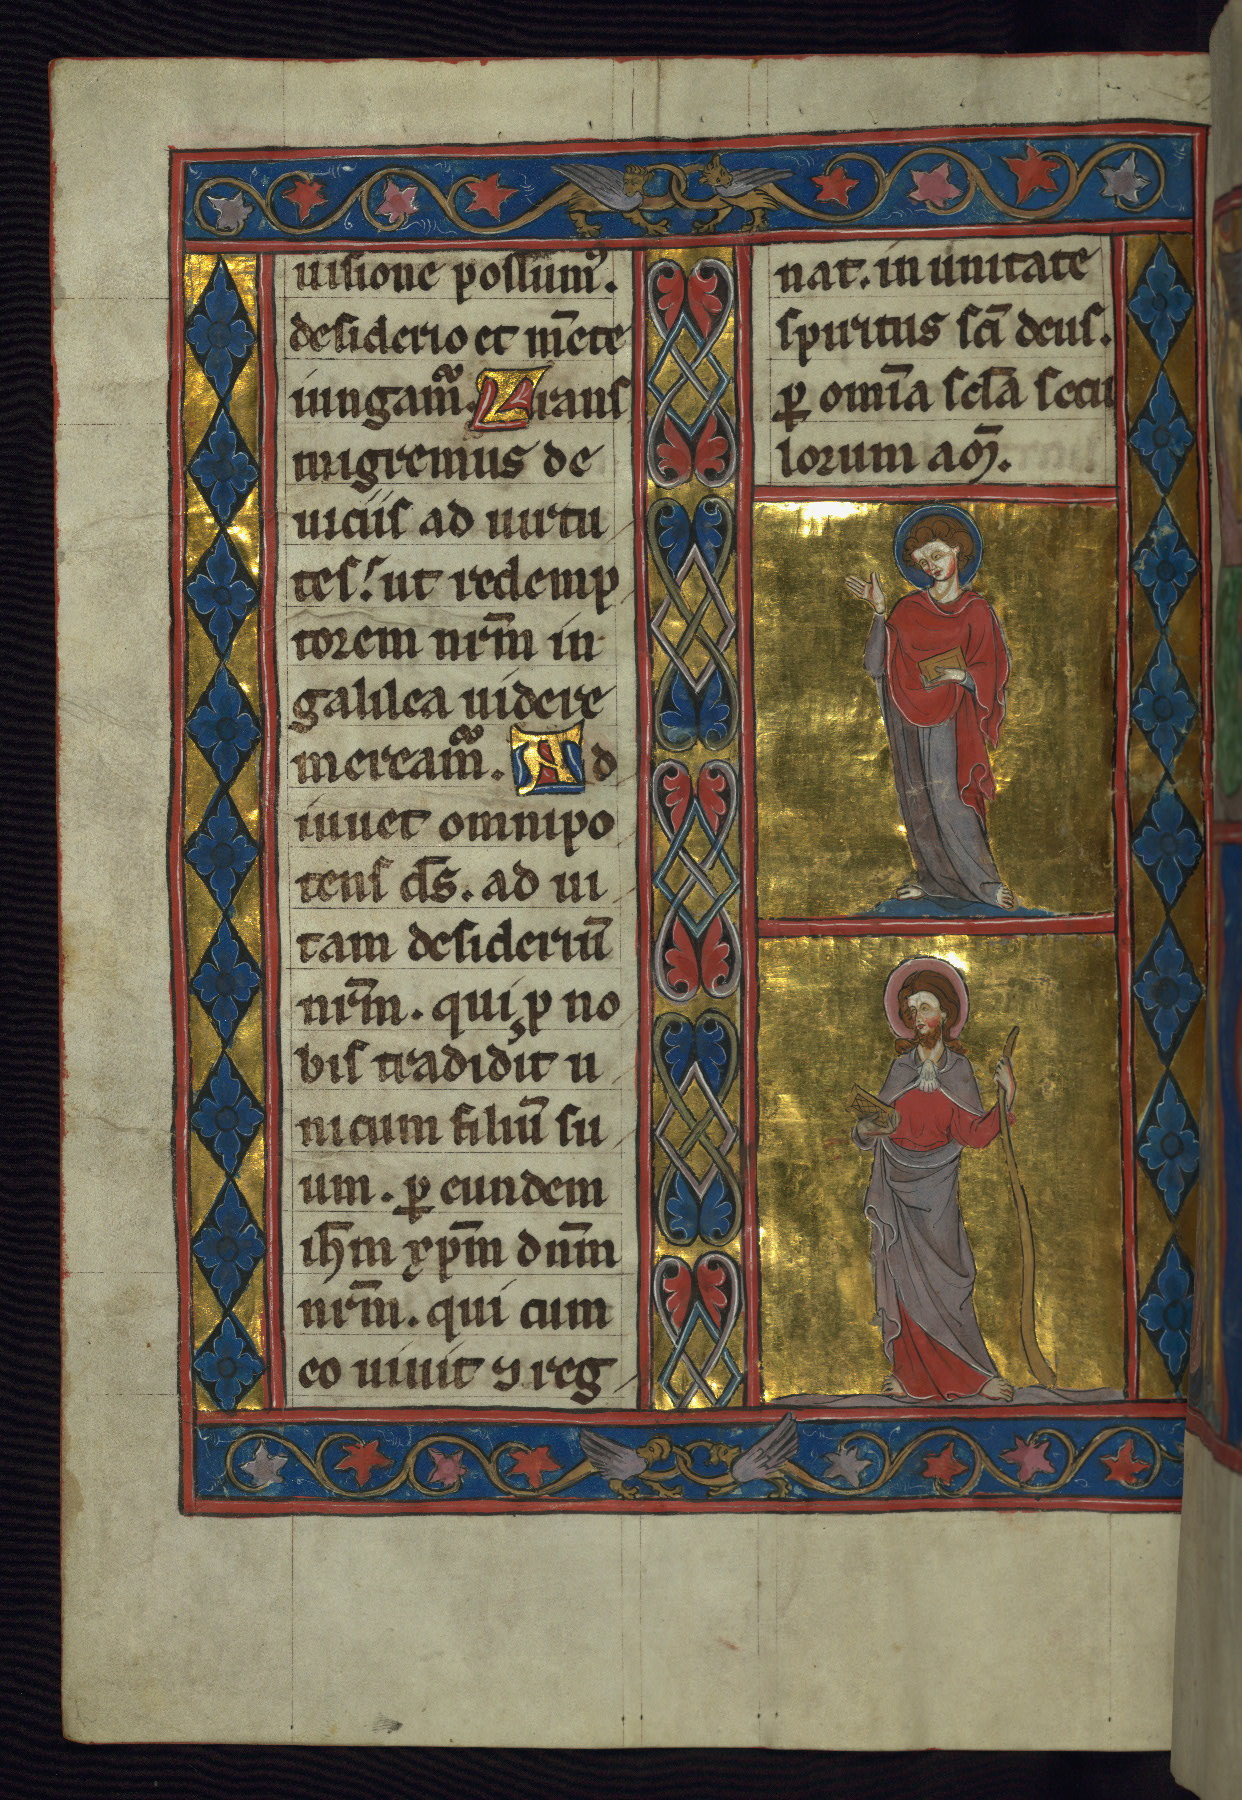 uisione possum᷒.
desiderio et m̄ete
iungam᷑. Trans
migremus de
uiciis ad uirtu
tes. ut redemp
torem nr̄m in
galilea uidere
meream᷑. Ad
iuuet omnipo
tens ds̄. ad ui
tam desideriū
nr̄m. qui ꝓ no
bis tradidit u
nicum filiū su
um. ꝑ eundem
ih̄m xp̄m dn̄m
nr̄m. qui cum
eo uiuit ⁊ reg
nat. in unitate
spiritus sc̄i deus.
ꝑ omīa sc̄la secu
lorum am̄.